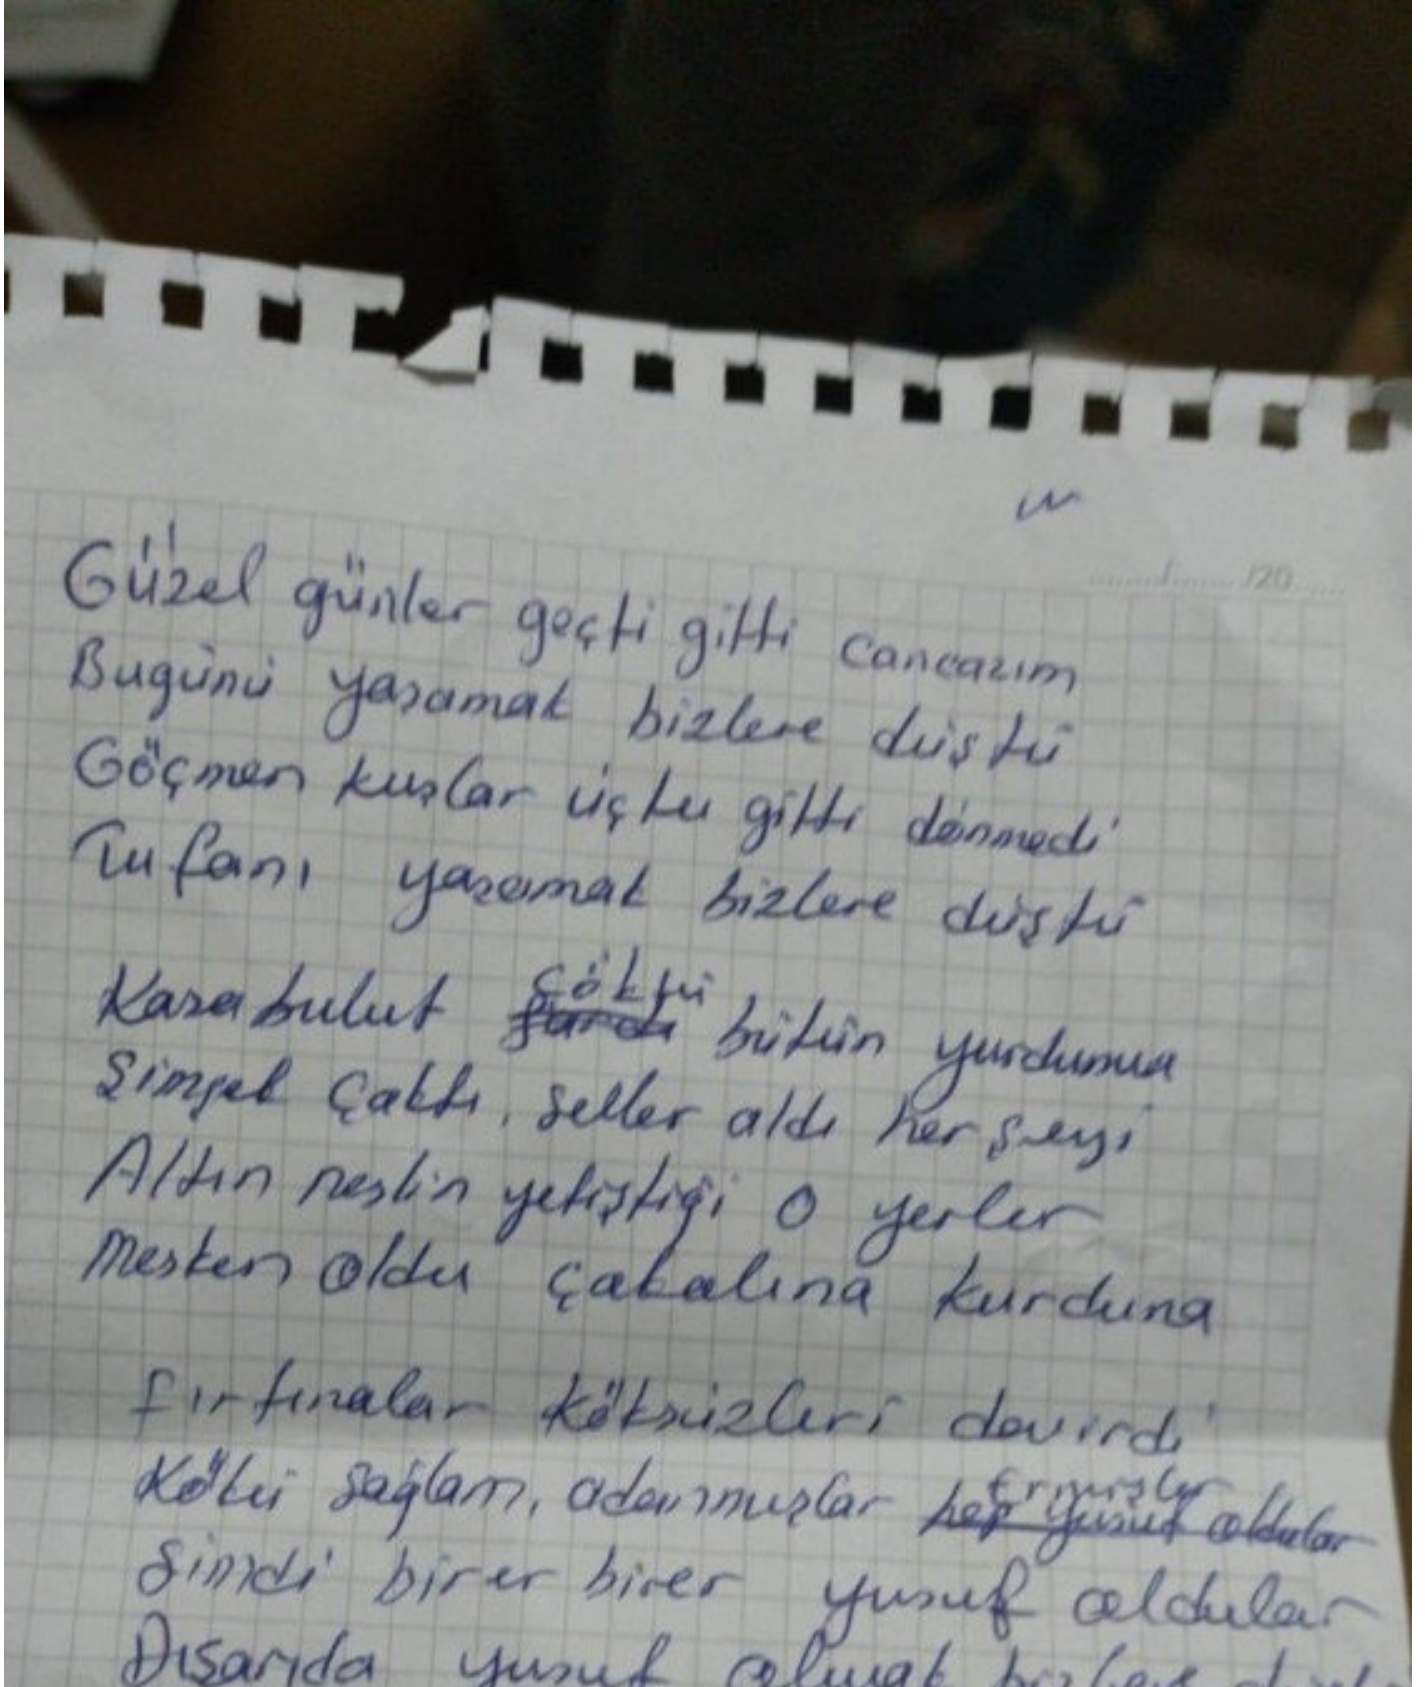 ....../....../20......
Güzel günler geçti gitti cancazım
Bugünü yaşamak bizlere düştü
Göçmen kuşlar üçtu gitti dönmedi
Tufanı yaşamak bizlere düştü
Karabulut çöktü bütün yurduma
Şimşek çaktı, seller aldı her şeyi
Altın neslin yetiştiği o yerler
Mesken oldu çakalına kurduna
Fırtınalar köksüzleri devirdi
Kökü sağlam, adanmışlar ermişler
hep yusuf oldular
Şimdi birer birer yusuf oldular
Dışarıda yusuf olmak bizlere